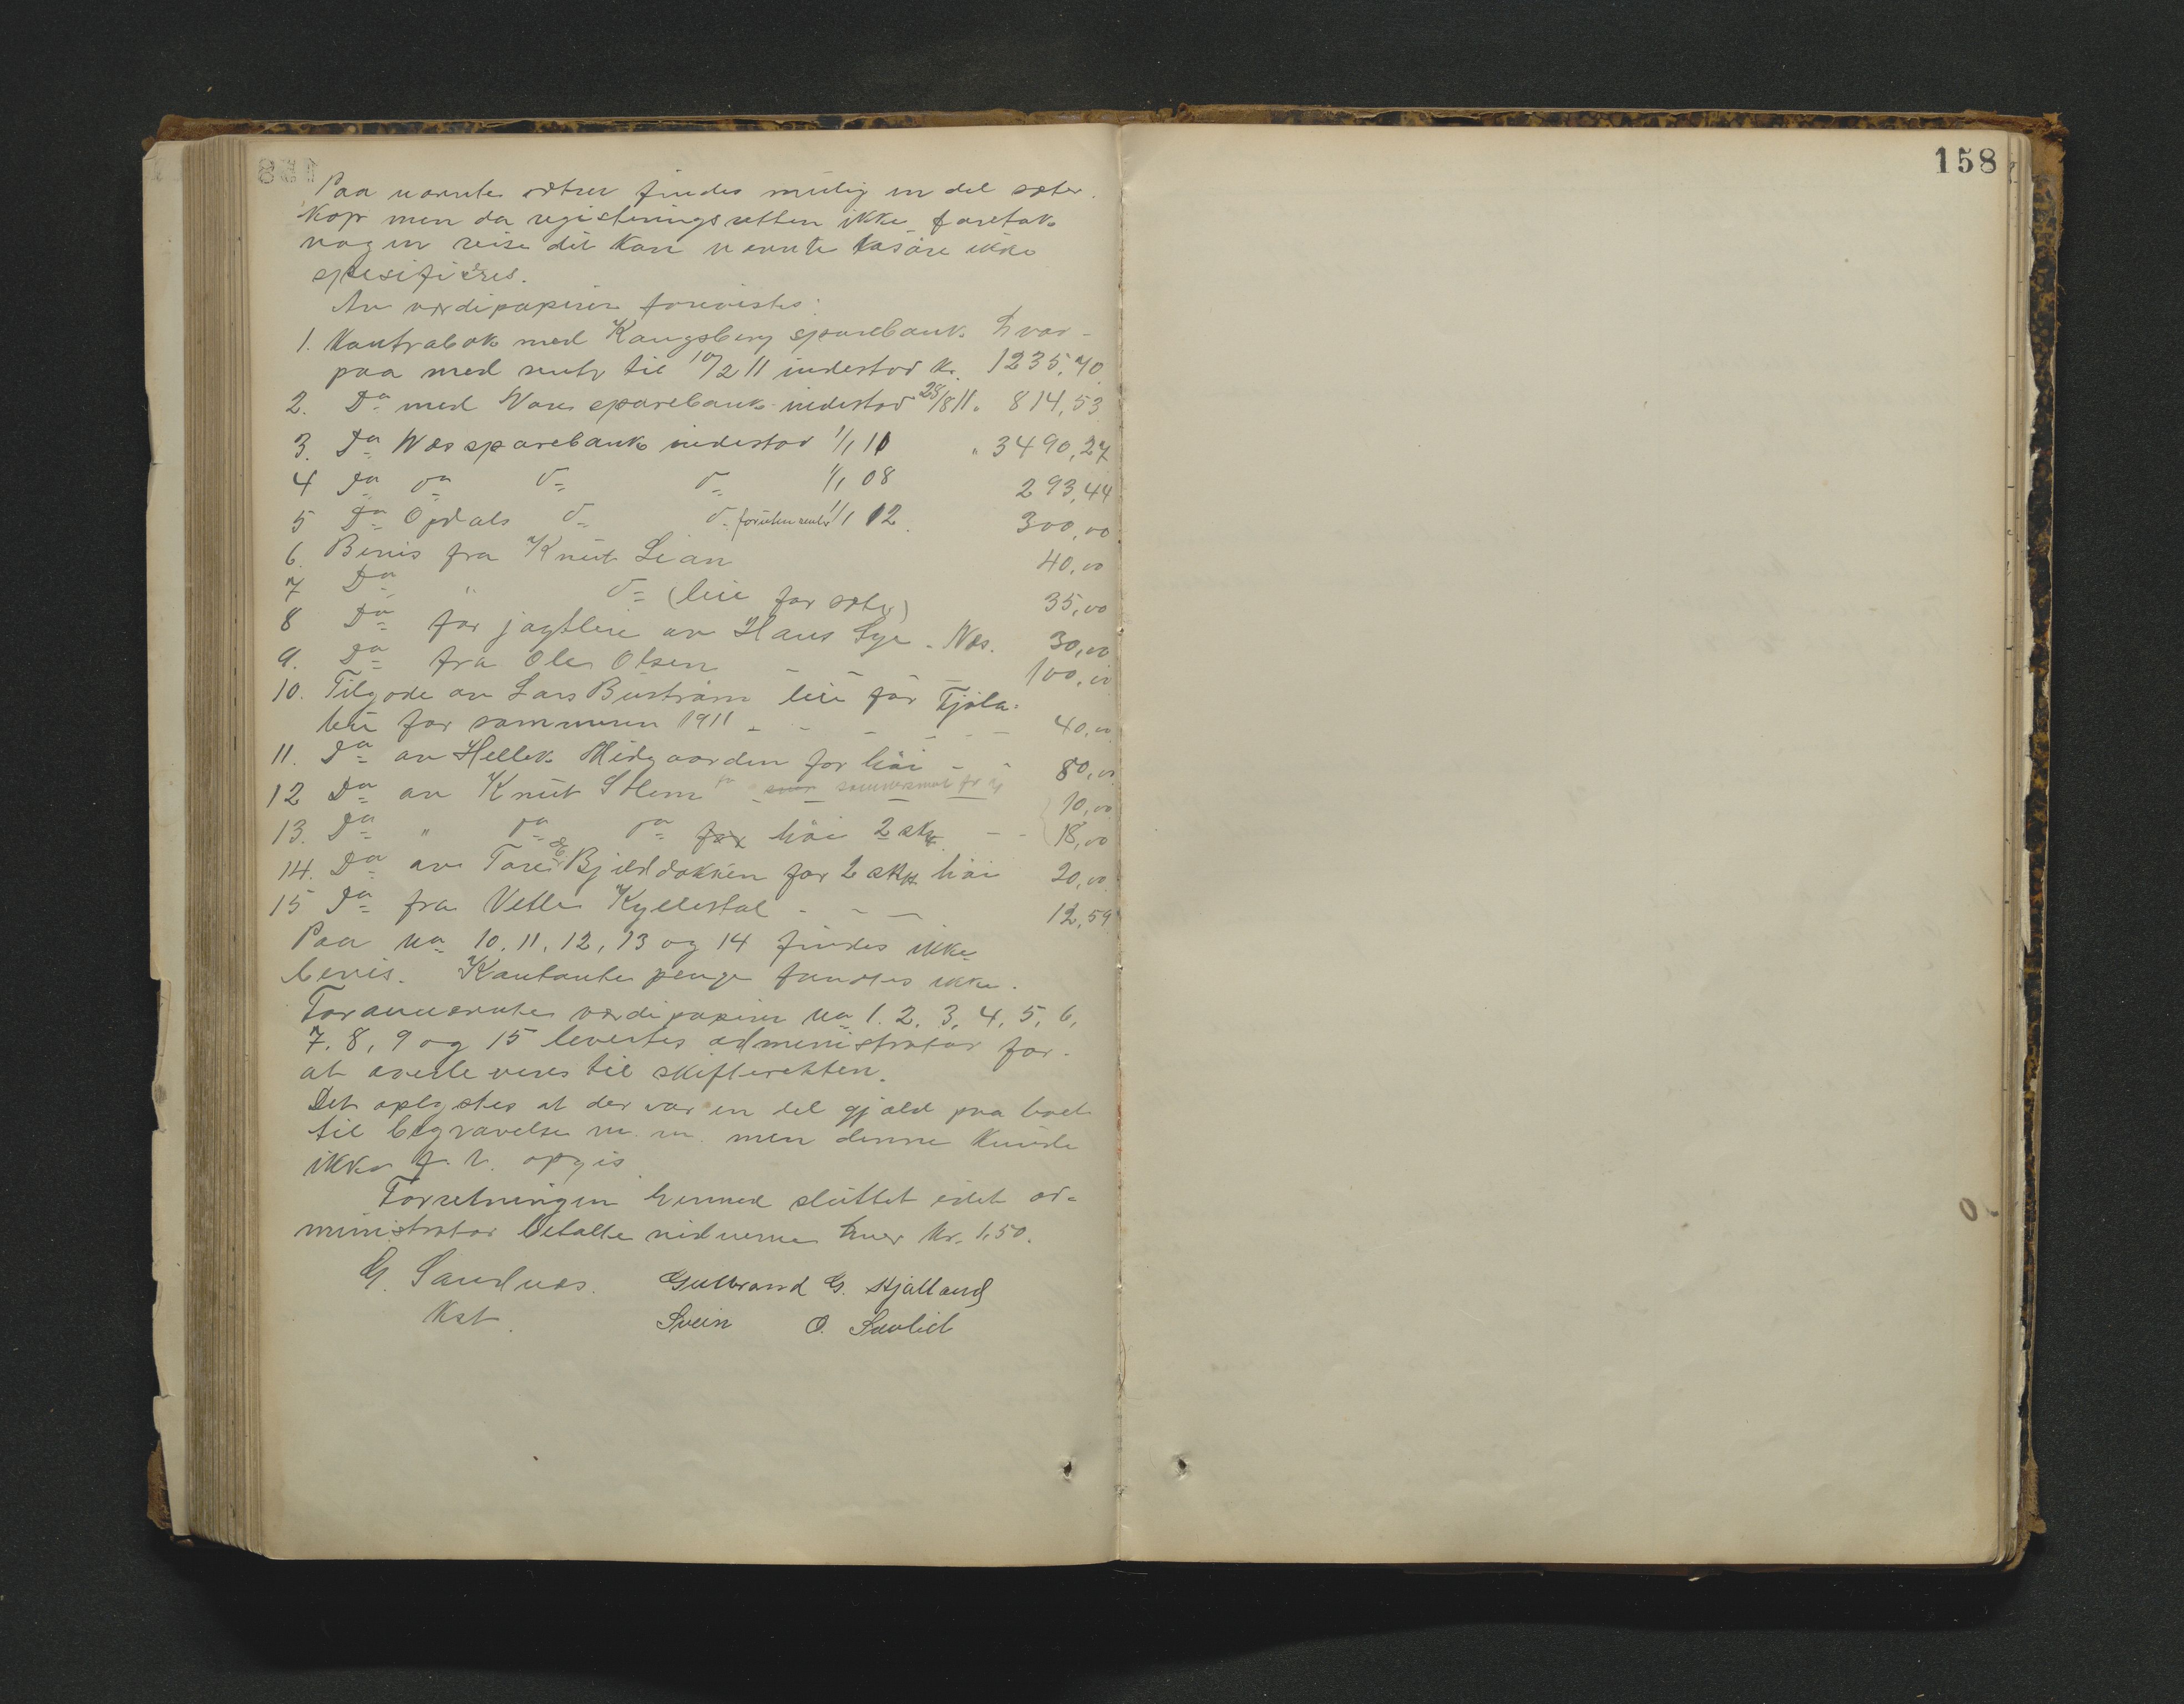 158
Paa nævnte sætrer findes mulig en del sæter
kop men da registeringsretten ikke foretok
nogen reise dit kan nævnte løsøre ikke
spesifieres.
Av værdipapirer forevistes:
1. Kontrabok med Kongsberg sparebank hvor-
paa med renter til 10/2 11 indestod kr. 1235,70
2. Do med Nore sparebank indestod 28/8 11 " 814,53
3. Do Næs sparebank indestod 1/1 11 " 3490,27
4 Do do do do 1/1 08 293,44
5 Do Opdals do do foruten renter 1/1 12. 300,00
6. Bevis fra Knut Lian 40,00
7 Do " do (leie for sæter) 35,00
8 Do for jagtleie av Hans Lye - Næs. 30,00
9. Do fra Ole Olsen - - - 100,00
10. Tilgode av Lars Buström leie for Fjøla-
leie for sommeren 1911 - - - - - 40,00
11. Do av Hellek Midgaarden for höi - - 80,00
12 Do av Knut Stlem for sommermat for 10,00
13. Do " do do for höi 2 skk - - 18,00
14. Do av Tore Bjelddokken for 2 skk höi 20,00
15 Do fra Vetle Kyllestal - - - 12,59
Paa No 10, 11, 12, 13 og 14 findes ikke
bevis. Kontante penge fandtes ikke.
Forannævnte værdipapirer No 1. 2. 3, 4, 5, 6,
7, 8, 9 og 15 levertes administrator for-
at overleveres til skifteretten.
Det oplystes at der var en del gjæld paa boet
til begravelse m. m. men denne kunde
ikke f. t. opgis
Forretningen hermed sluttet idet ad-
ministrator betalte vidnerne hver Kr. 1,50.
G. Sandnes. Gulbrand G. Kjalland
Kst. Svein O. Sevlied